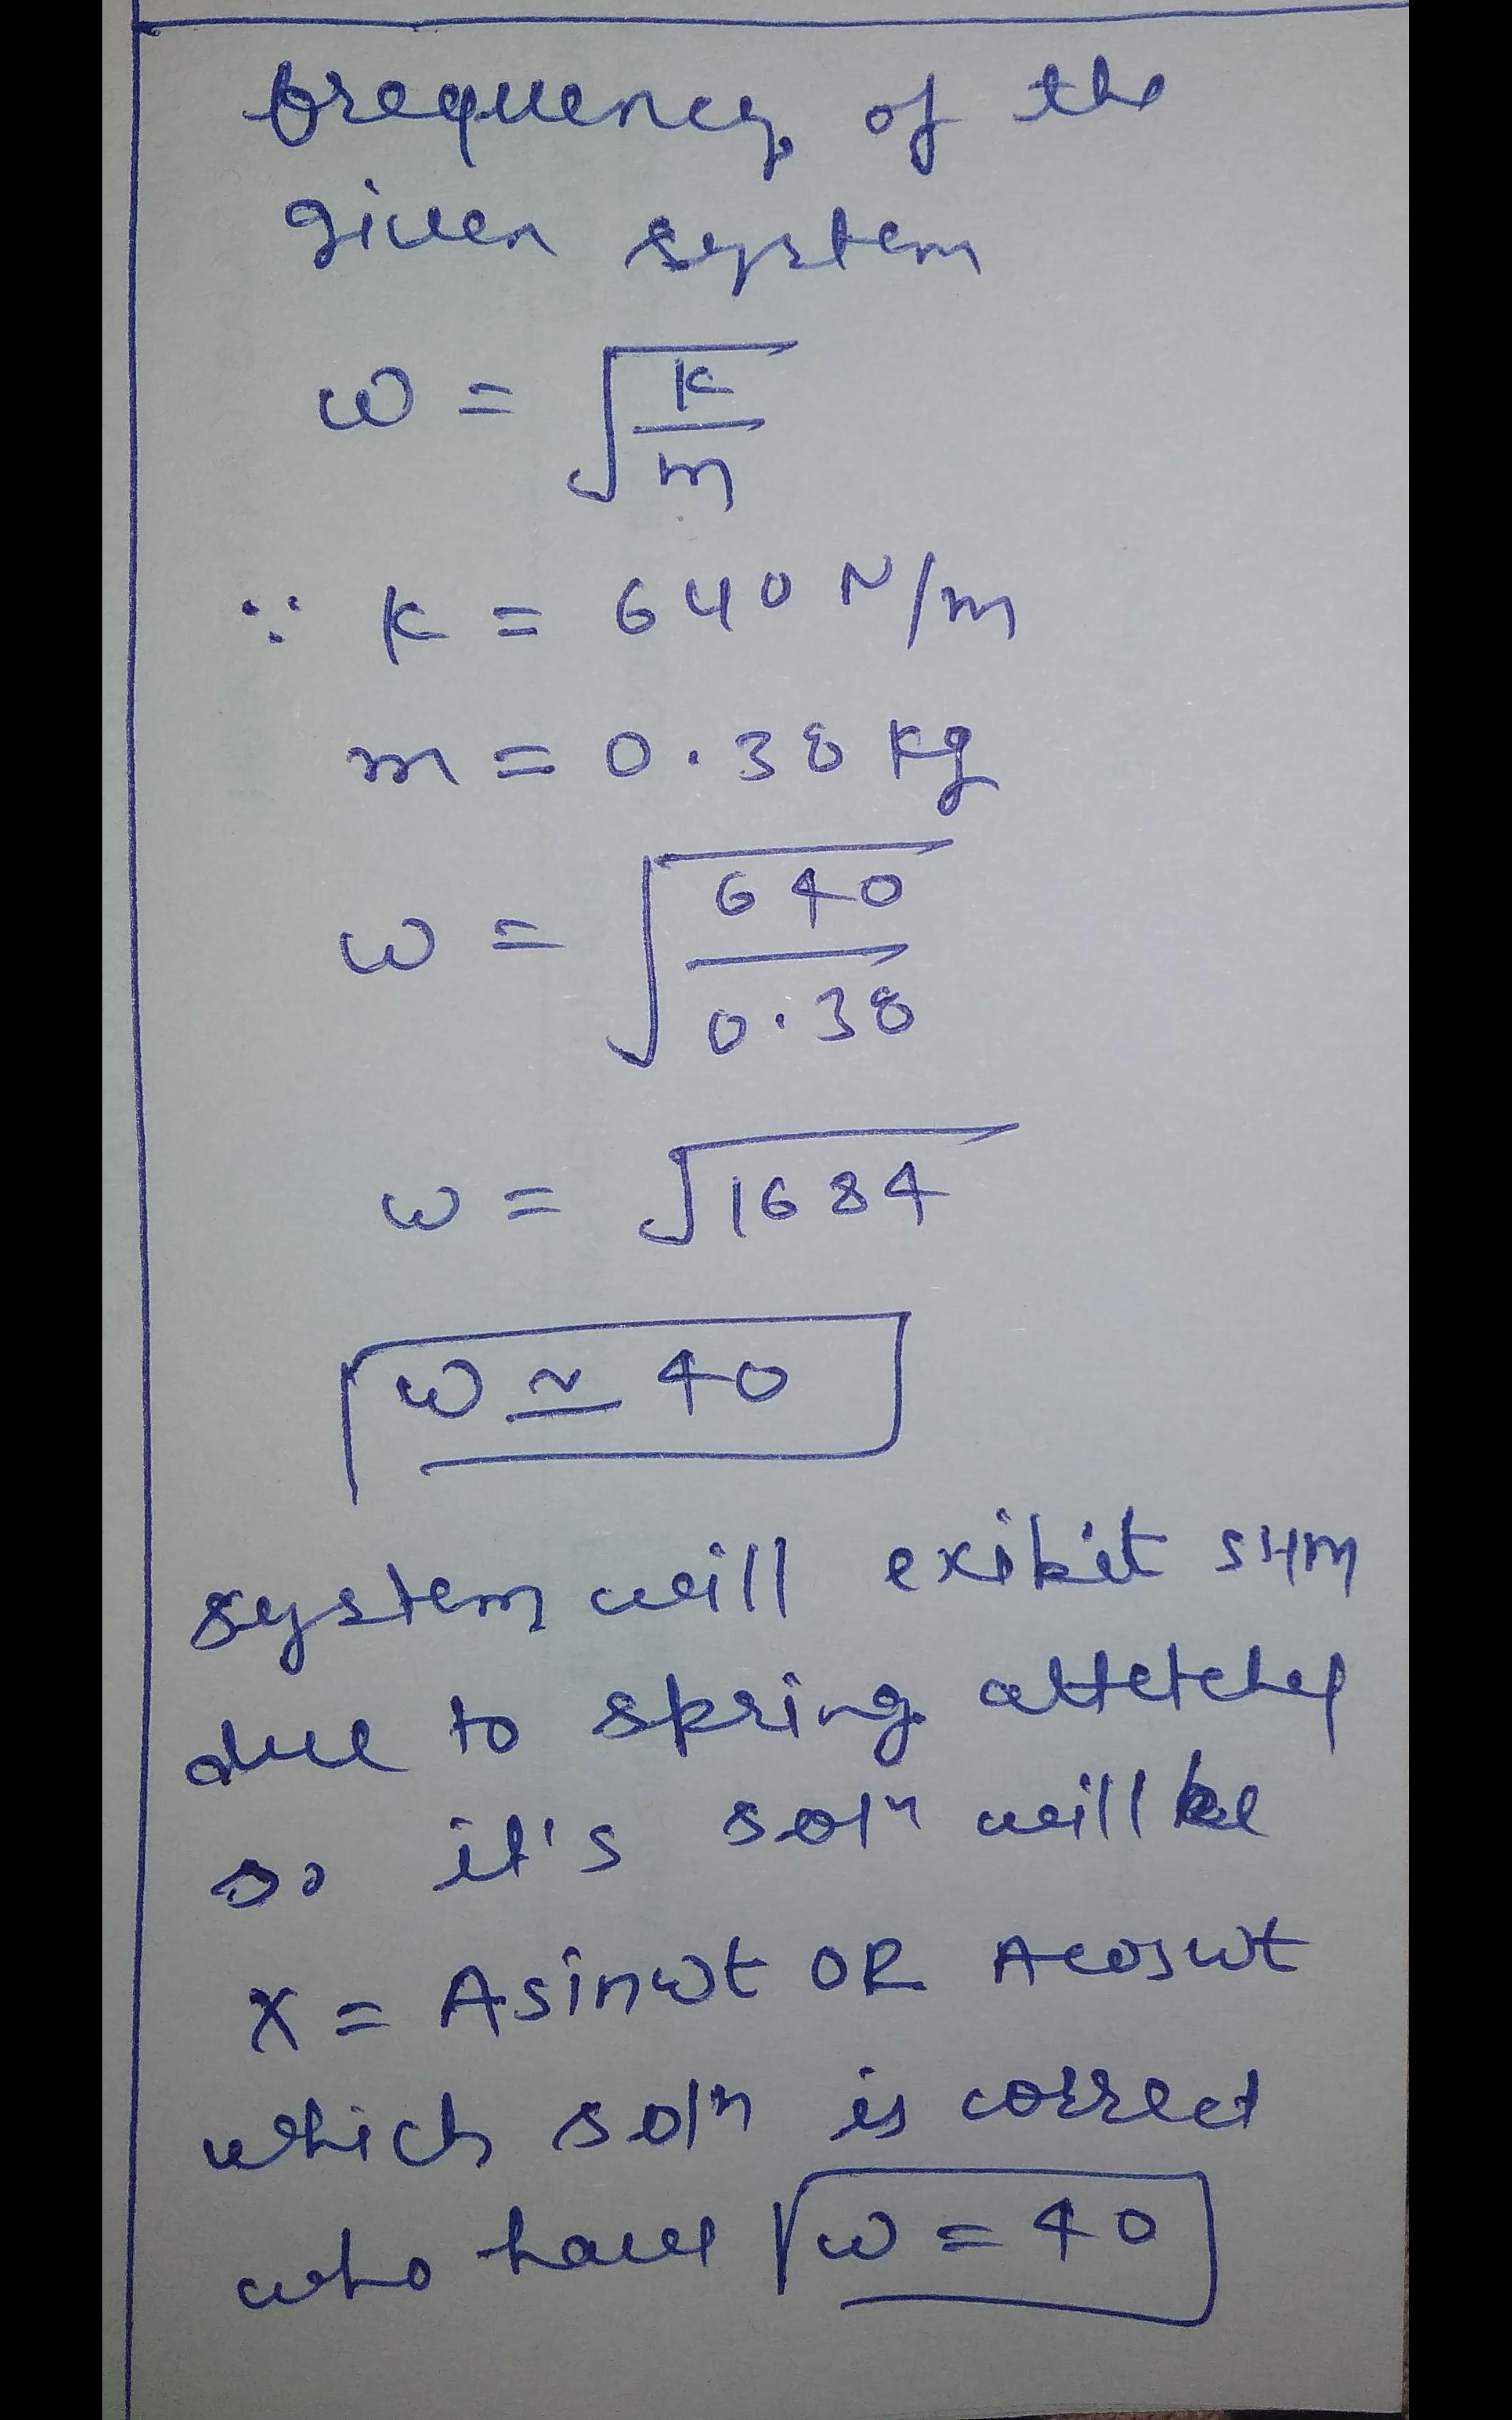 frequency of the
given system
ω = √(k/m)
∵ k = 640 N/m
m = 0.38 kg
ω = √(640/0.38)
ω = √1684
ω ≃ 40
system will exibit SHM
due to spring
so it's solⁿ will be
x = Asinωt OR Acosωt
which solⁿ is correct
who have ω = 40